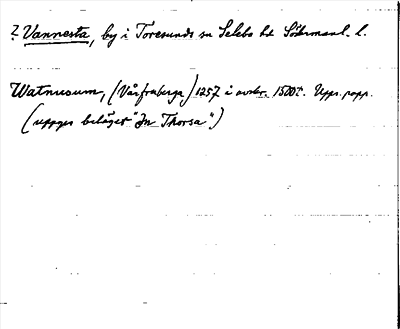 ? Vannesta, by i Toresunds sn Selebo hd Södermanl. l.
Watnusum, (Vårfruberga) 1257 i avskr. 1500t. Upps. papp.
(uppges beläget "In Thorsa")